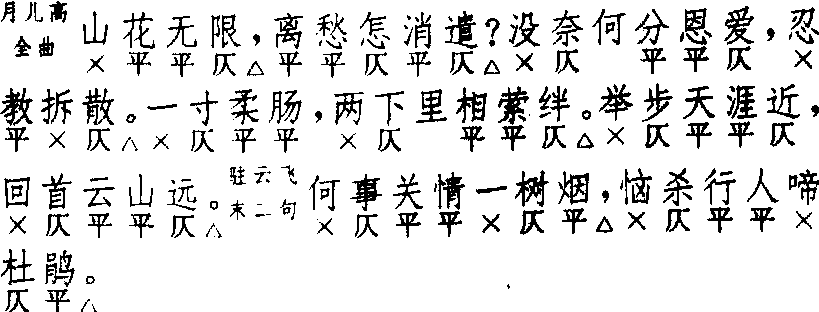 月儿高全曲 山花无限，离愁怎消遣？没奈何分恩爱，忍
× 平 平 仄 △ 平 平 仄 平 仄 △ × 仄 平 平 仄 ×
教拆散。一寸柔肠，两下里相萦绊。举步天涯近，
平 × 仄 △ × 仄 平 平 × 仄 平 平 仄 △ × 仄 平 平 仄
回首云山远。驻云飞末二句 何事关情一树烟，恼杀行人啼
× 仄 平 平 仄 △ × 仄 平 平 × 仄 平 △ × 仄 平 平 ×
杜鹃。
仄 平 △